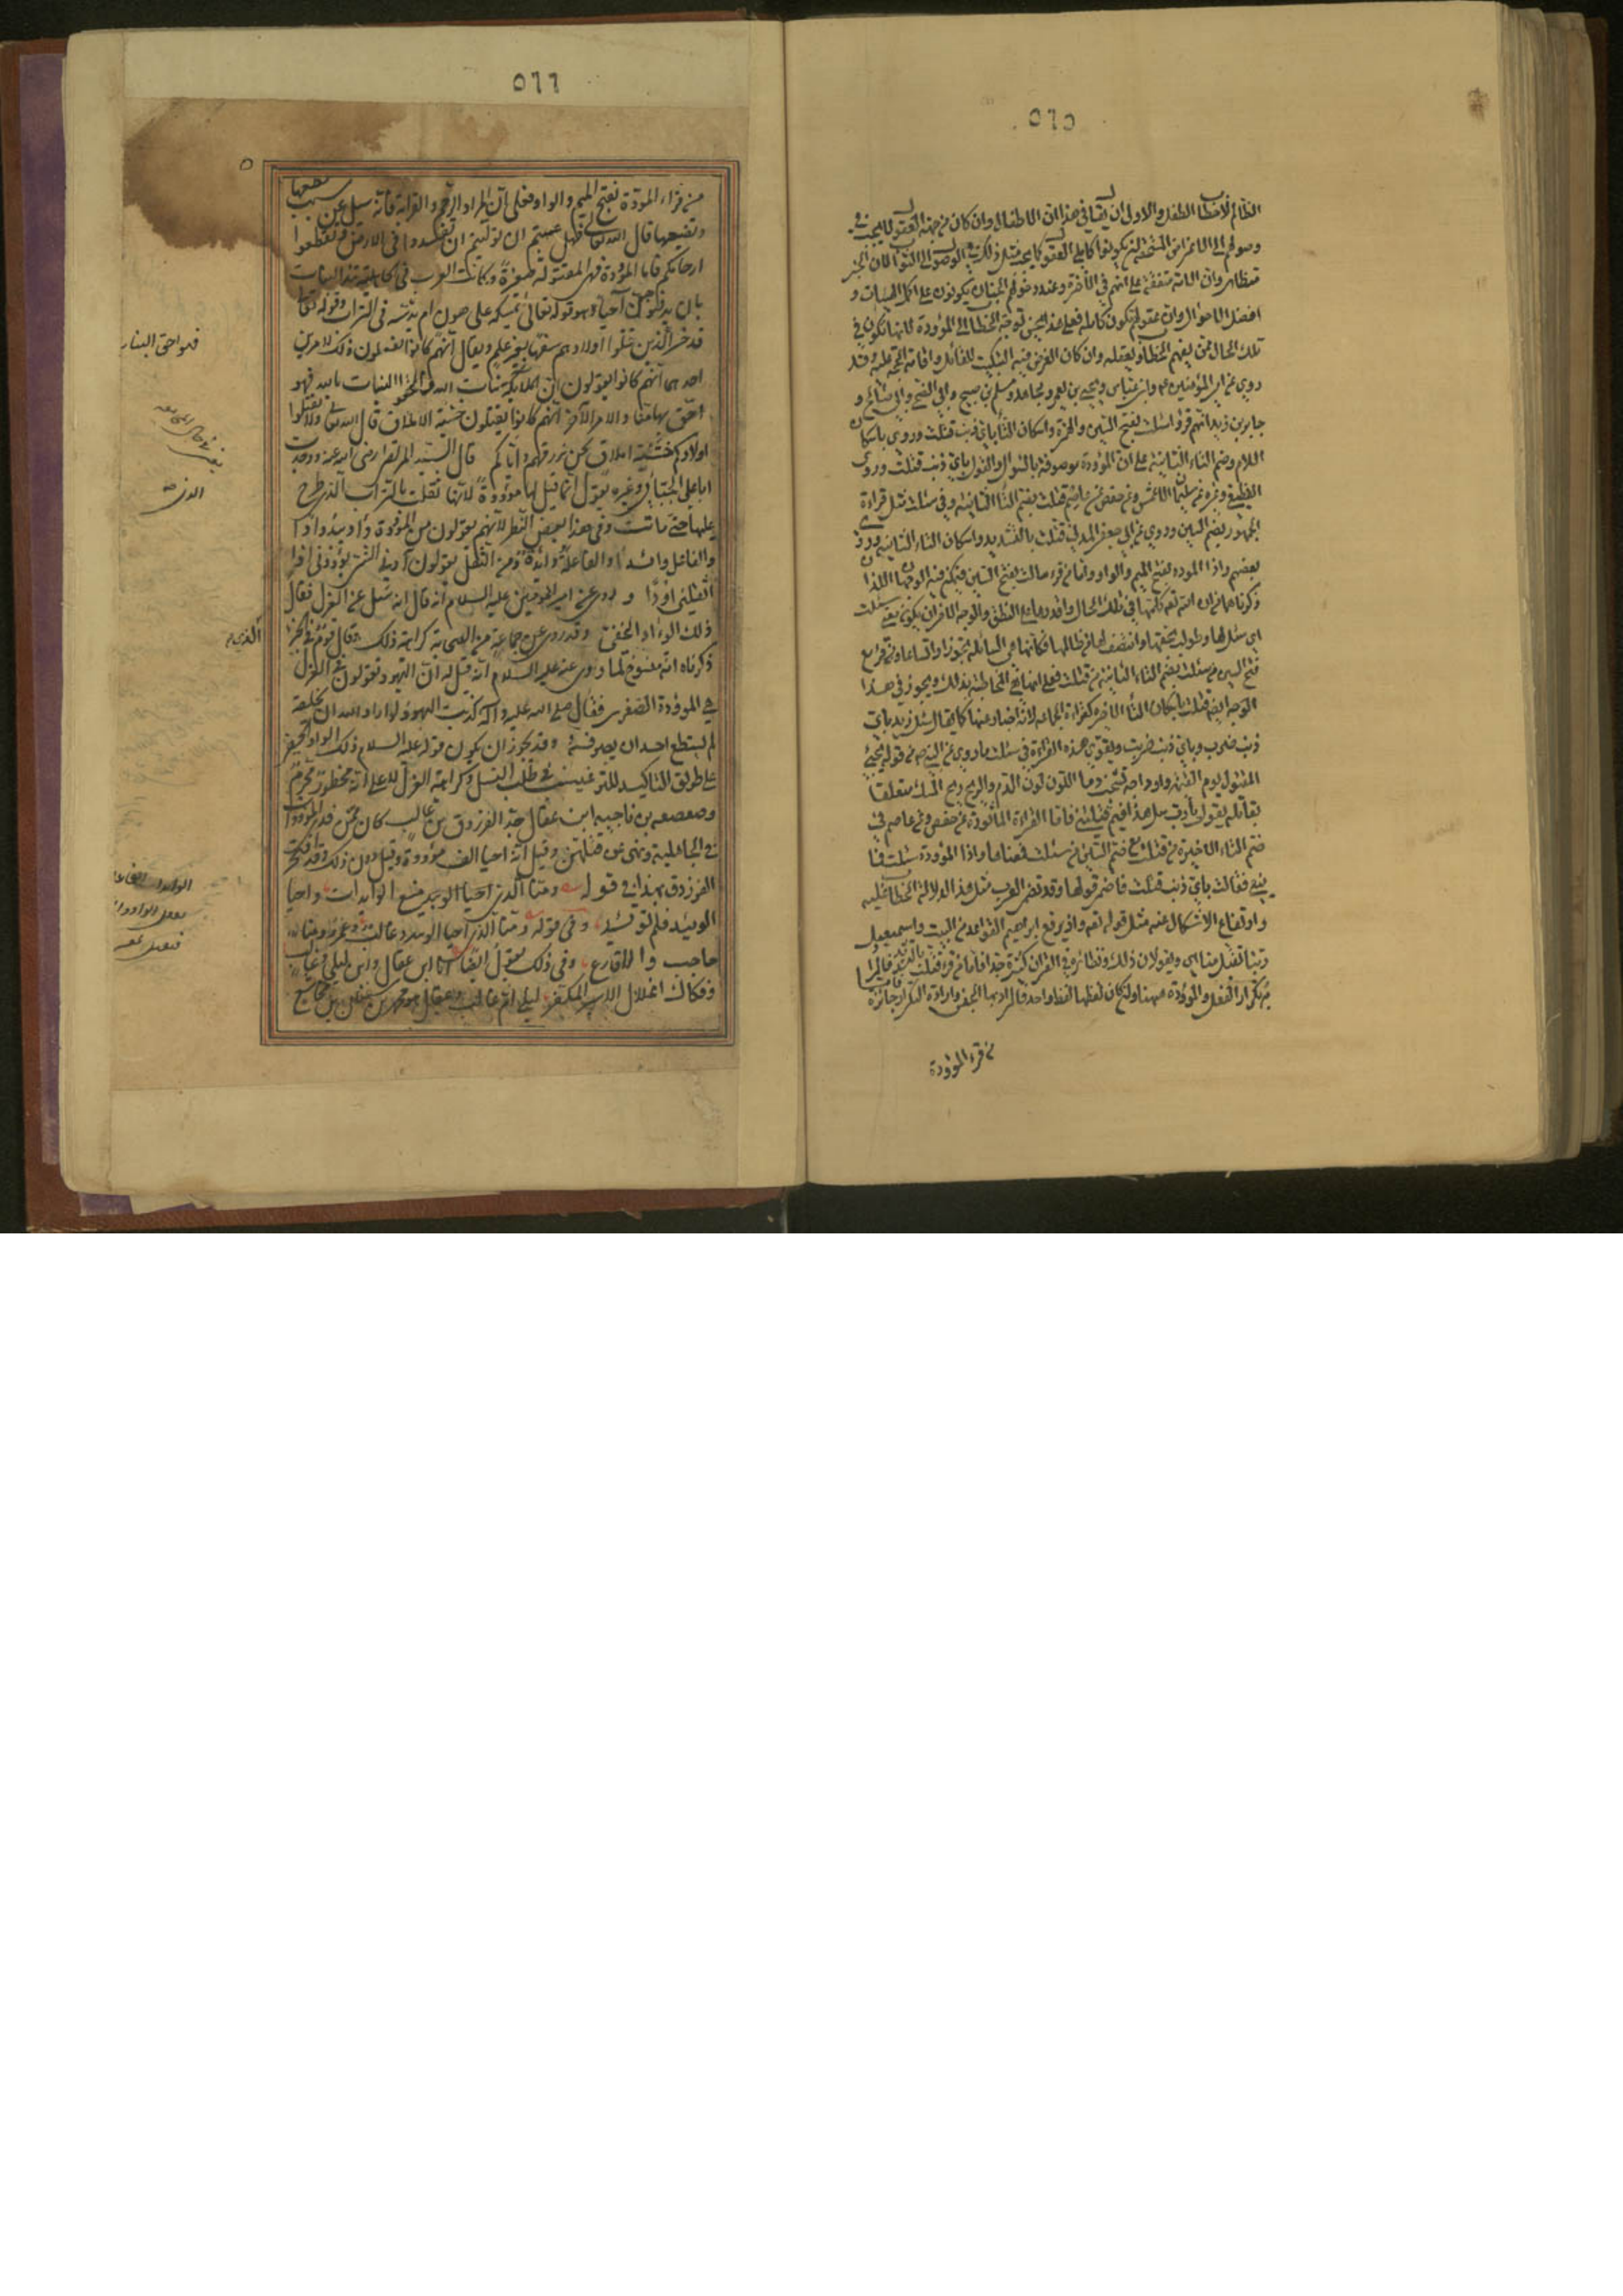 ٥٦٥
الظالم لا خطاب الطفل والاولى ان يقال في هذا ان الاطفال وان كان من جهة العقول لا يجب في
وصولهم الى الاغراض المستحقة ان يكونوا كاملي العقول كما يجب مثل ذلك في الوصول الى الثواب فان الخبر
متظاهر وان الامة متفقة على انهم في الآخرة وعند دخولهم الجنان يكونون على اكمل الهيئات و
افضل الاحوال وان عقولهم تكون كاملة فعلى هذا يحسن توجه الخطاب الى الموؤدة لانها تكون في
تلك الحال ممن يفهم الخطاب ويعقله وان كان الغرض فيه التبكيت للقاتل واقامة الحجة عليه وقد
روي عن امير المؤمنين وابن عباس ويحيى بن يعمر ومجاهد ومسلم بن صبيح وابي الضحى وابي صالح و
جابر بن زيد انهم قرؤا سالت بفتح السين والهمزة واسكان التاء باي ذنب قتلت وروي باسكان
اللام وضم التاء الثانية على ان الموؤدة موصوفة بالسؤال والقول باي ذنب قتلت وروى
القطيعي وغيره عن سليمان الاعمش وعن حفص عن عاصم قتلت بضم التاء الثانية وفي سئلت مثل قراءة
الجمهور بضم السين وروي عن ابي جعفر المدني قتلت بالتشديد واسكان التاء الثانية وروي
بعضهم واذا المودة بفتح الميم والواو فاما من قرء سالت بفتح السين فيمكن فيه الوجهان اللذان
ذكرناهما من ان الله تعه كلمها في تلك الحال واقدرها على النطق والوجه الاخر ان يكون معنى سئلت
اي سئل لها وطولب بحقها وانتصف لها من ظالمها فكانها هي السائلة تجوزا واتساعا ومن قرء مع
فتح السين من سئلت بضم التاء الثانية من قتلت فعلى انها هي المخاطبة بذلك ويجوز في هذا
الوجه ايضا قتلت باسكان التاء الاخيرة كقراءة الجماعة لانه اخبار عنها كما يقال سئل زيد باي
ذنب ضرب وباي ذنب ضربت ويقوي هذه القراءة في سئلت ما روي عن النبي ص من قوله يجيئ
المقتول يوم القيمة واوداجه تشخب دما اللون لون الدم والريح ريح المسك متعلقا
بقاتله يقول يارب سل هذا فيم قتلني فاما القراءة الماثورة عن حفص عن عاصم في
ضم التاء الاخيرة من قتلت مع ضم السين من سئلت فمعناها واذا الموؤدة سئلت ما
تبغي فقالت باي ذنب قتلت فاضمر قولها وقد تضمر العرب مثل هذا لدلالة الخطاب عليه
وارتفاع الاشكال عنه مثل قوله تعه واذ يرفع ابراهيم القواعد من البيت واسمعيل
ربنا تقبل منا اي ويقولان ذلك ونظائره في القران كثيرة جدا فاما من قرء قتلت بالتشديد فالمراد
به تكرار الفعل والموؤدة ههنا وان كان لفظها لفظ واحدة فالمراد بها الجنس وارادة التكرار جائزة
من قرء الموؤدة
٥٦٦
من قراء المودة بفتح الميم والواو فعلى ان المراد الرحم والقرابة فانه سيل عن سبب قطعها
وتضييعها قال الله تعالى فهل عسيتم ان توليتم ان تفسدوا في الارض وتقطعوا
ارحامكم فاما الموؤدة فهي المقتولة صغيرة وكانت العرب في الجاهلية تئد البنات
بان يدفنوهن احياء وهو قوله تعالى ايمسكه على هون ام يدسه في التراب وقوله تعالى
قد خسر الذين قتلوا اولادهم سفها بغير علم ويقال انهم كانوا يفعلون ذلك لامرين
احدهما انهم كانوا يقولون ان الملايكة بنات الله فالحقوا البنات بالله فهو
احق بها منا والامر الآخر انهم كانوا يقتلون خشية الاملاق قال الله تعالى ولا تقتلوا
اولادكم خشية املاق نحن نرزقهم واياكم قال السيد المرتضى رضى الله عنه ووجدت
ابا علي الجبائي وغيره يقول انما قيل لها موؤودة لانها ثقلت بالتراب الذي طرح
عليها حتى ماتت وفي هذا بعض النظر لانهم يقولون من الموؤودة وأد يئد وأدا
والفاعل وائد والفاعلة وائدة ومن الثقل يقولون آدني الشئ يؤودني اذا
اثقلني اودا وروى عن امير المؤمنين عليه السلام انه قال انه سئل عن العزل فقال
ذلك الوأد الخفي وقد روى عن جماعة من الصحابة كراهة ذلك وقال قوم في الخبر الذي
ذكرناه انه منسوخ لما روى عنه عليه السلام انه قيل له ان اليهود يقولون في العزل
هي الموؤدة الصغرى فقال صلى الله عليه وآله كذبت اليهود لو اراد الله ان يخلقه
لم يستطع احد ان يصرفه وقد يجوز ان يكون قوله عليه السلام ذلك الوأد الخفي
على طريق التاكيد للترغيب في طلب النسل وكراهة العزل لا على انه محظور محرم
وصعصعه بن ناجيه ابن عقال جد الفرزدق بن غالب كان ممن فدى الموؤدات
في الجاهلية ونهى عن قتلهن وقيل انه احيا الف موؤودة وقيل دون ذلك وقد افتخر
الفرزدق بهذا في قوله ومنا الذي احيا الوئيد منع الوايدات واحيا
الوئيد فلم توئد وفي قوله ومنا الذي احيا الوئيد وغالب وعمرو ومنا
حاجب والاقارع وفي ذلك يقول ايضا انا ابن عقال وابن ليلى وغالب
وفكاك اغلال الاسير المكفر ليلى ام غالب وعقال هو محمد بن سفين بن مجاشع
فهو احق البنات